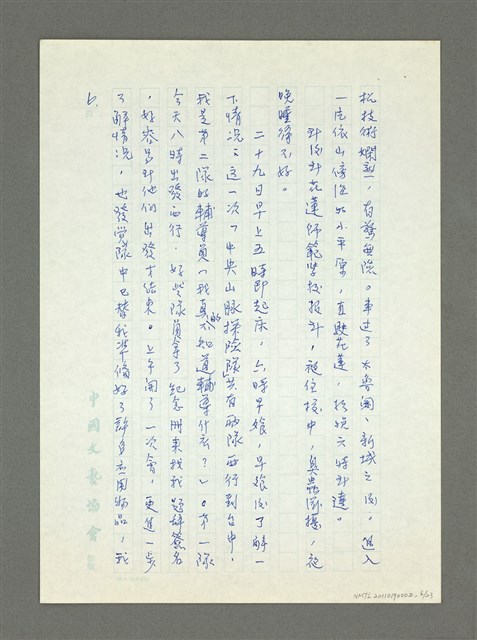 机技術嫻熟，有驚無險。車過了太魯閣、新城之後，進入
一片依山傍海的小平原，直驅花蓮，於晚六時到達。
到後到花蓮師範學校報到，被住校中，臭蟲困擾，夜
晚睡得不好。
二十九日早上五時即起床，六時早餐，早飯後了解一
下情況：這一次「中央山脈探險隊」共有兩隊西行到台中，
我是第二隊的輔導員（我真的不知道輔導什么？）。第一隊
今天八時出發西行，好些隊員拿了紀念冊來找我題辭簽名
，好容易到他們出發才結束。上午開了一次會，更進一步
了解情況，也發覺隊中已替我準備好了許多應用物品，我
6.
中國文藝協會
NMTL20110190002_6/23